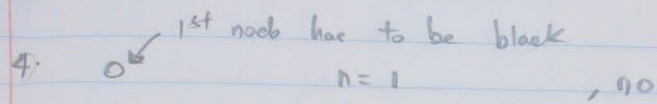 1st noob hae to be black
4. n = 1 , no